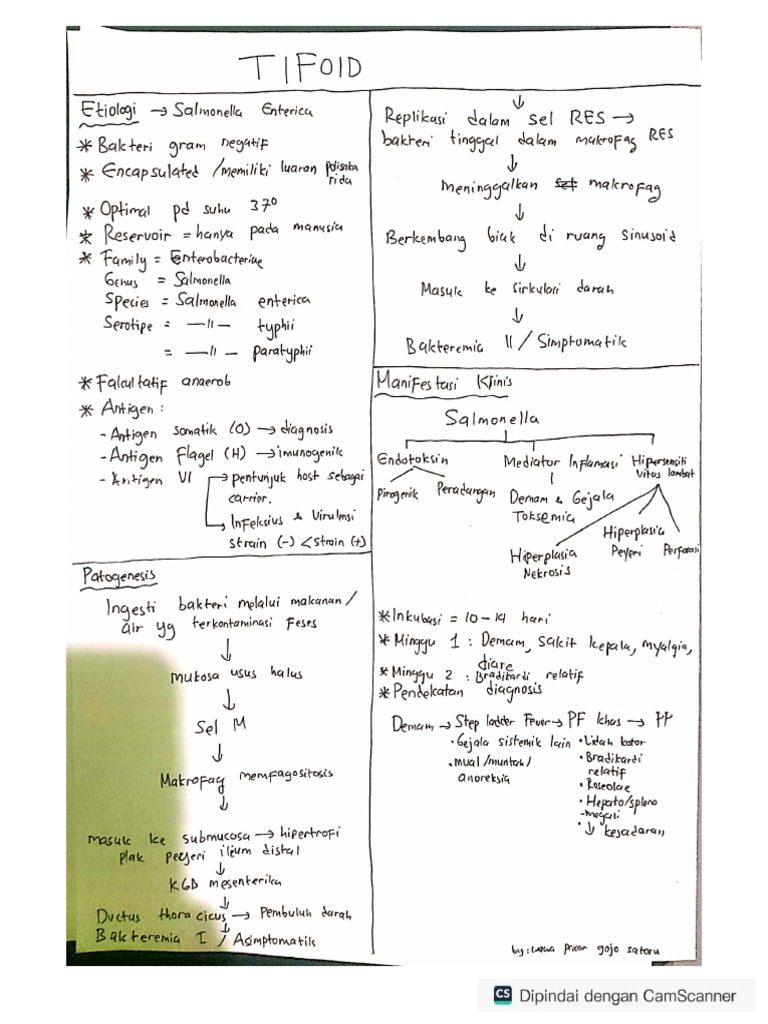 TIFOID
Etiologi → Salmonella Enterica
* Bakteri gram negatif
* Encapsulated /memiliki luaran polisaka
rida
* Optimal pd suhu 37°
* Reservoir = hanya pada manusia
* Family = Enterobacteriae
Genus = Salmonella
Species = Salmonella enterica
Serotipe = —11— typhii
= —11— paratyphii
* Fakultatif anaerob
* Antigen :
- Antigen somatik (O) → diagnosis
- Antigen Flagel (H) → imunogenik
- Antigen VI → pentunjuk host sebagai
carrier.
→ Infeksius & Virulensi
strain (-) < strain (+)
Patogenesis
Ingesti bakteri melalui makanan /
air yg terkontaminasi Feses
↓
mukosa usus halus
↓
Sel M
↓
Makrofag memfagositosis
↓
masuk ke submucosa → hipertrofi
plak peyeri ileum distal
↓
KGB mesenterika
↓
Ductus thoracicus → Pembuluh darah
↓
Bakteremia I / Asimptomatik
↓
Replikasi dalam sel RES →
bakteri tinggal dalam makrofag RES
↓
Meninggalkan makrofag
↓
Berkembang biak di ruang sinusoid
↓
Masuk ke sirkulasi darah
↓
Bakteremia II / Simptomatik
Manifestasi Klinis
Salmonella
Endotoksin Mediator Inflamasi Hipersensiti
vitas lambat
Pirogenik Peradangan Demam & Gejala
Toksemia
Hiperplasia
Nekrosis
Hiperplasia
Peyeri
Perforasi
* Inkubasi = 10-14 hari
* Minggu 1 : Demam, sakit kepala, myalgia,
diare
* Minggu 2 : Bradikardi relatif
* Pendekatan diagnosis
Demam → Step ladder Fever → PF khas → PP
• Gejala sistemik lain
• mual/muntah/
anoreksia
• Lidah kotor
• Bradikardi
relatif
• Roseolae
• Hepato/spleno
-megali
• ↓ kesadaran
by: gojo satoru
CS Dipindai dengan CamScanner